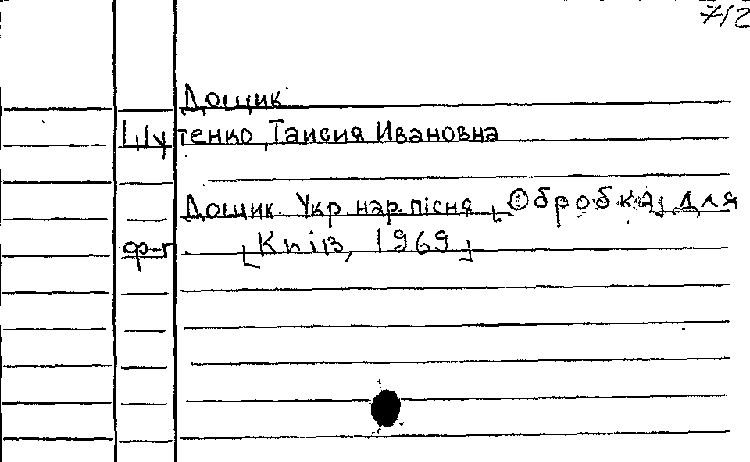 712
Дощик
Шутенко Таисия Ивановна
Дощик. Укр. нар. пісня [Обробка] для
ф-п. [Київ, 1969]